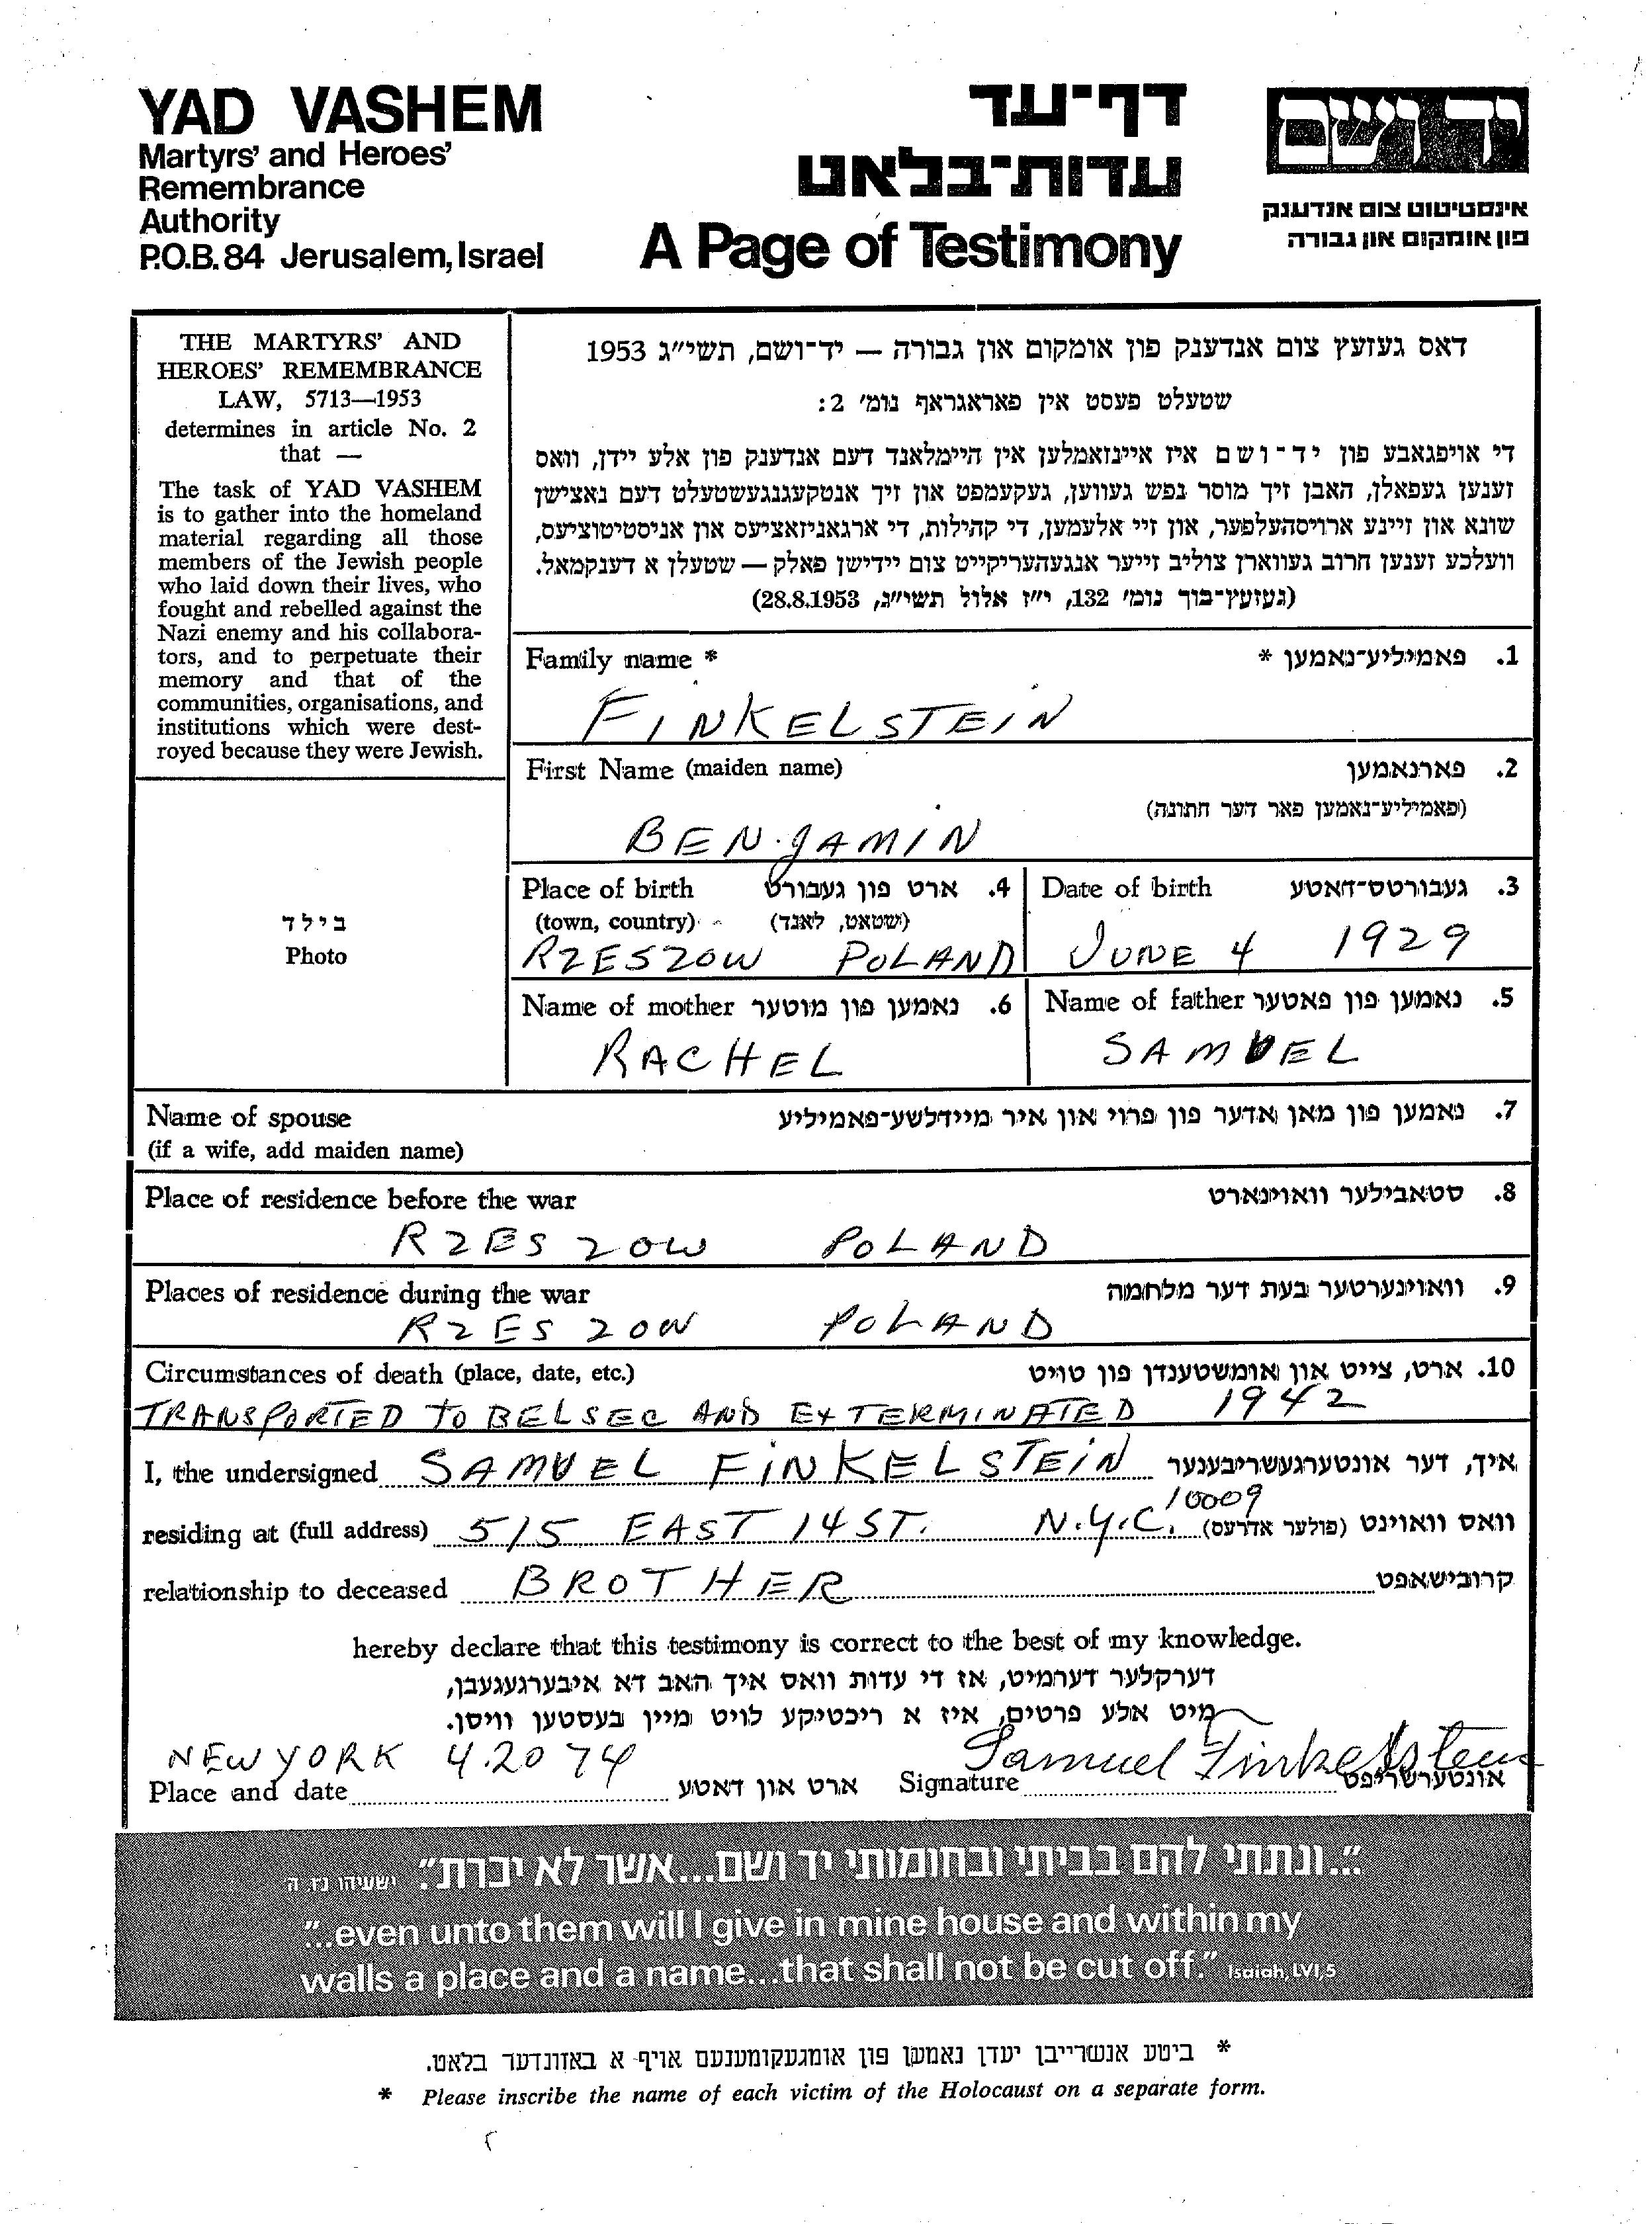 YAD VASHEM
Martyrs' and Heroes'
Remembrance
Authority
P.O.B. 84 Jerusalem, Israel
דף־עד
עדות־בלאט
A Page of Testimony
יד ושם
אינסטיטוט צום אנדענק
פון אומקום און גבורה
THE MARTYRS' AND
HEROES' REMEMBRANCE
LAW, 5713—1953
determines in article No. 2
that —
The task of YAD VASHEM
is to gather into the homeland
material regarding all those
members of the Jewish people
who laid down their lives, who
fought and rebelled against the
Nazi enemy and his collabora-
tors, and to perpetuate their
memory and that of the
communities, organisations, and
institutions which were dest-
royed because they were Jewish.
דאס געזעץ צום אנדענק פון אומקום און גבורה — יד־ושם, תשי״ג 1953
שטעלט פעסט אין פאראגראף נומ׳ 2:
די אויפגאבע פון יד־ושם איז איינזאמלען אין היימלאנד דעם אנדענק פון אלע יידן, וואס
זענען געפאלן, האבן זיך מוסר נפש געווען, געקעמפט און זיך אנטקעגנגעשטעלט דעם נאצישן
שונא און זיינע ארויסהעלפער, און זיי אלעמען, די קהילות, די ארגאניזאציעס און אניסטיטוציעס,
וועלכע זענען חרוב געווארן צוליב זייער אנגעהעריקייט צום יידישן פאלק — שטעלן א דענקמאל.
(געזעץ־בוך נומ׳ 132, י״ז אלול תשי״ג, 28.8.1953)
Family name * 1. פאמיליע־נאמען *
FINKELSTEIN
First Name (maiden name) 2. פארנאמען
(פאמיליע־נאמען פאר דער חתונה)
BENJAMIN
בילד
Photo
Place of birth 4. ארט פון געבורט
(town, country) (שטאט, לאנד)
RZESZOW POLAND
Date of birth 3. געבורטס־דאטע
JUNE 4 1929
Name of mother 6. נאמען פון מוטער
RACHEL
Name of father 5. נאמען פון פאטער
SAMUEL
Name of spouse 7. נאמען פון מאן אדער פון פרוי און איר מיידלשע־פאמיליע
(if a wife, add maiden name)
Place of residence before the war 8. סטאבילער וואוינארט
RZESZOW POLAND
Places of residence during the war 9. וואוינערטער בעת דער מלחמה
RZESZOW POLAND
Circumstances of death (place, date, etc.) 10. ארט, צייט און אומשטענדן פון טויט
TRANSPORTED TO BELSEC AND EXTERMINATED 1942
I, the undersigned SAMUEL FINKELSTEIN איך, דער אונטערגעשריבענער
residing at (full address) 515 EAST 14 ST. N.Y.C. 10009 וואס וואוינט (פולער אדרעס)
relationship to deceased BROTHER קרובישאפט
hereby declare that this testimony is correct to the best of my knowledge.
דערקלער דערמיט, אז די עדות וואס איך האב דא איבערגעגעבן,
מיט אלע פרטים, איז א ריכטיקע לויט מיין בעסטען וויסן.
NEW YORK 4.20 74 Samuel Finkelstein
Place and date ארט און דאטע Signature אונטערשריפט
"...ונתתי להם בביתי ובחומותי יד ושם...אשר לא יכרת." ישעיהו נו ה
"...even unto them will I give in mine house and within my
walls a place and a name...that shall not be cut off." Isaiah, LVI,5
* ביטע אנשרייבן יעדן נאמען פון אומגעקומענעם אויף א באזונדער בלאט.
* Please inscribe the name of each victim of the Holocaust on a separate form.